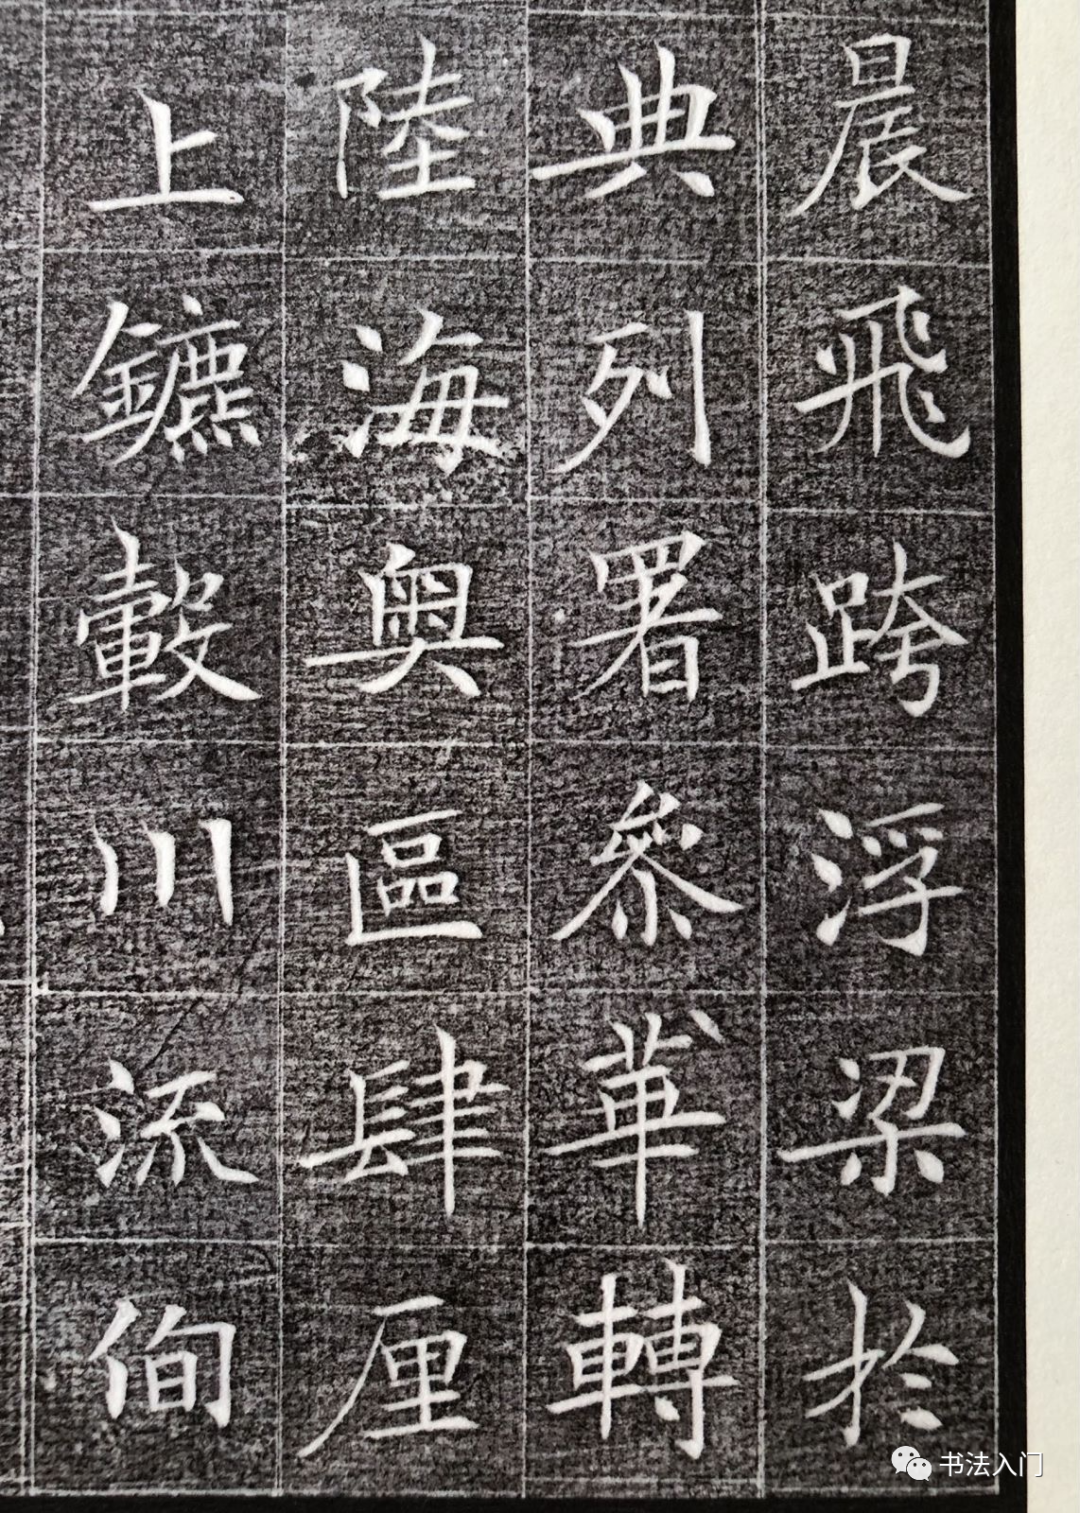 晨飛跨浮梁於
典列署參華轉
陸海奥區肆厘
上鑣轂川流佝
书法入门